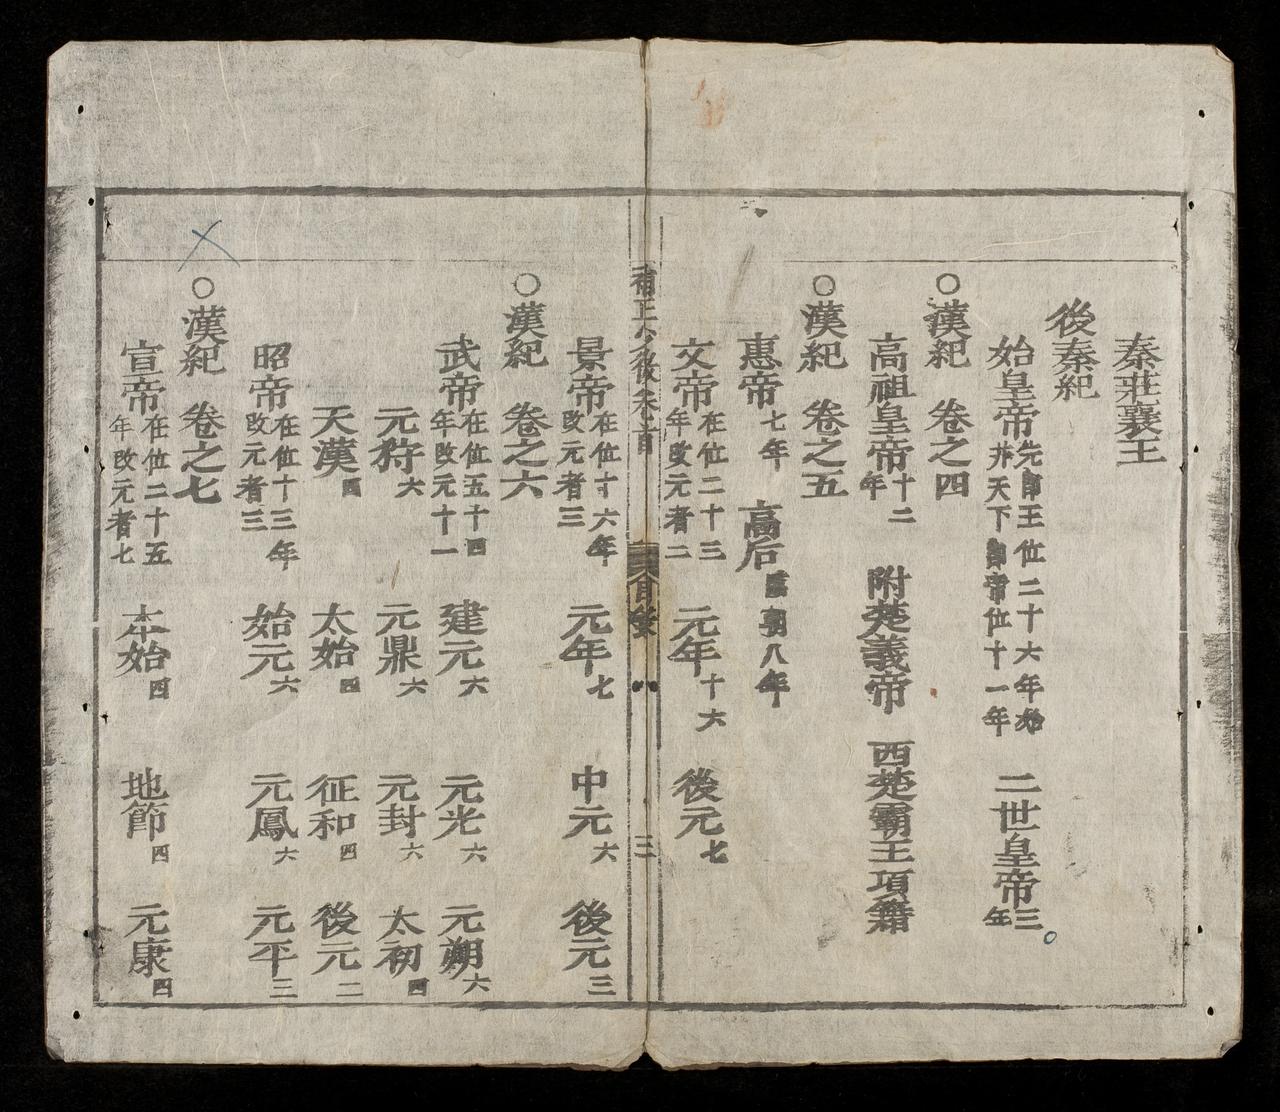 秦莊襄王
後秦紀
始皇帝 先卽王位二十六年始幷天下卽帝位十一年 二世皇帝 三年
○漢紀 卷之四
高祖皇帝 十二年 附楚義帝 西楚霸王項籍
○漢紀 卷之五
惠帝 七年 高后 臨朝八年
文帝 在位二十三年改元者二 元年 十六 後元 七
補正少微卷首 目錄 三
景帝 在位十六年改元者三 元年 七 中元 六 後元 三
○漢紀 卷之六
武帝 在位五十四年改元十一 建元 六 元光 六 元朔 六
元狩 六 元鼎 六 元封 六 太初 四
天漢 四 太始 四 征和 四 後元 二
昭帝 在位十三年改元者三 始元 六 元鳳 六 元平 三
○漢紀 卷之七
宣帝 在位二十五年改元者七 本始 四 地節 四 元康 四